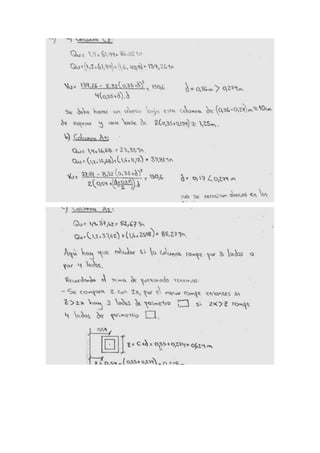 a) Columna C2:
Qu= 1,4×61,44= 86,02 tn
Qu=(1,2×61,44)+(1,6× 40,96)= 139,26 tn
Vu= 139,26 - 8,32(0,35+d)² / 4(0,35+d).d = 130,6 d= 0,36m > 0,279m
Se debe hacer un abaco bajo esta columna de (0,36-0,27)m ≈ 10cm
de espesor y una base de 2(0,35+0,279) ≅ 1,25m.
b) Columna A4:
Qu= 1,4×16,68 = 23,35tn
Qu=(1,2×16,68)+(1,6×11,12) = 37,81tn
= 130,6 d= 0,17 < 0,279 m
no se necesitan ábacos en las
c) Columna A2:
Qu= 1,4×37,62 = 52,67 tn
Qu=(1,2× )+(1,6×25,08) = 85,27tn
Aqui hay que calcular si la columna rompe por 3 lados o
por 4 lados.
Recordando el tema de punzonado tenemos:
- Se compara z con 2x, por el menor rompe entonces si
z>2x hay 3 lados de perimetro si 2x>z rompe
4 lados de perimetro
0,54
z= C+d= 0,35+0,279= 0,629 m